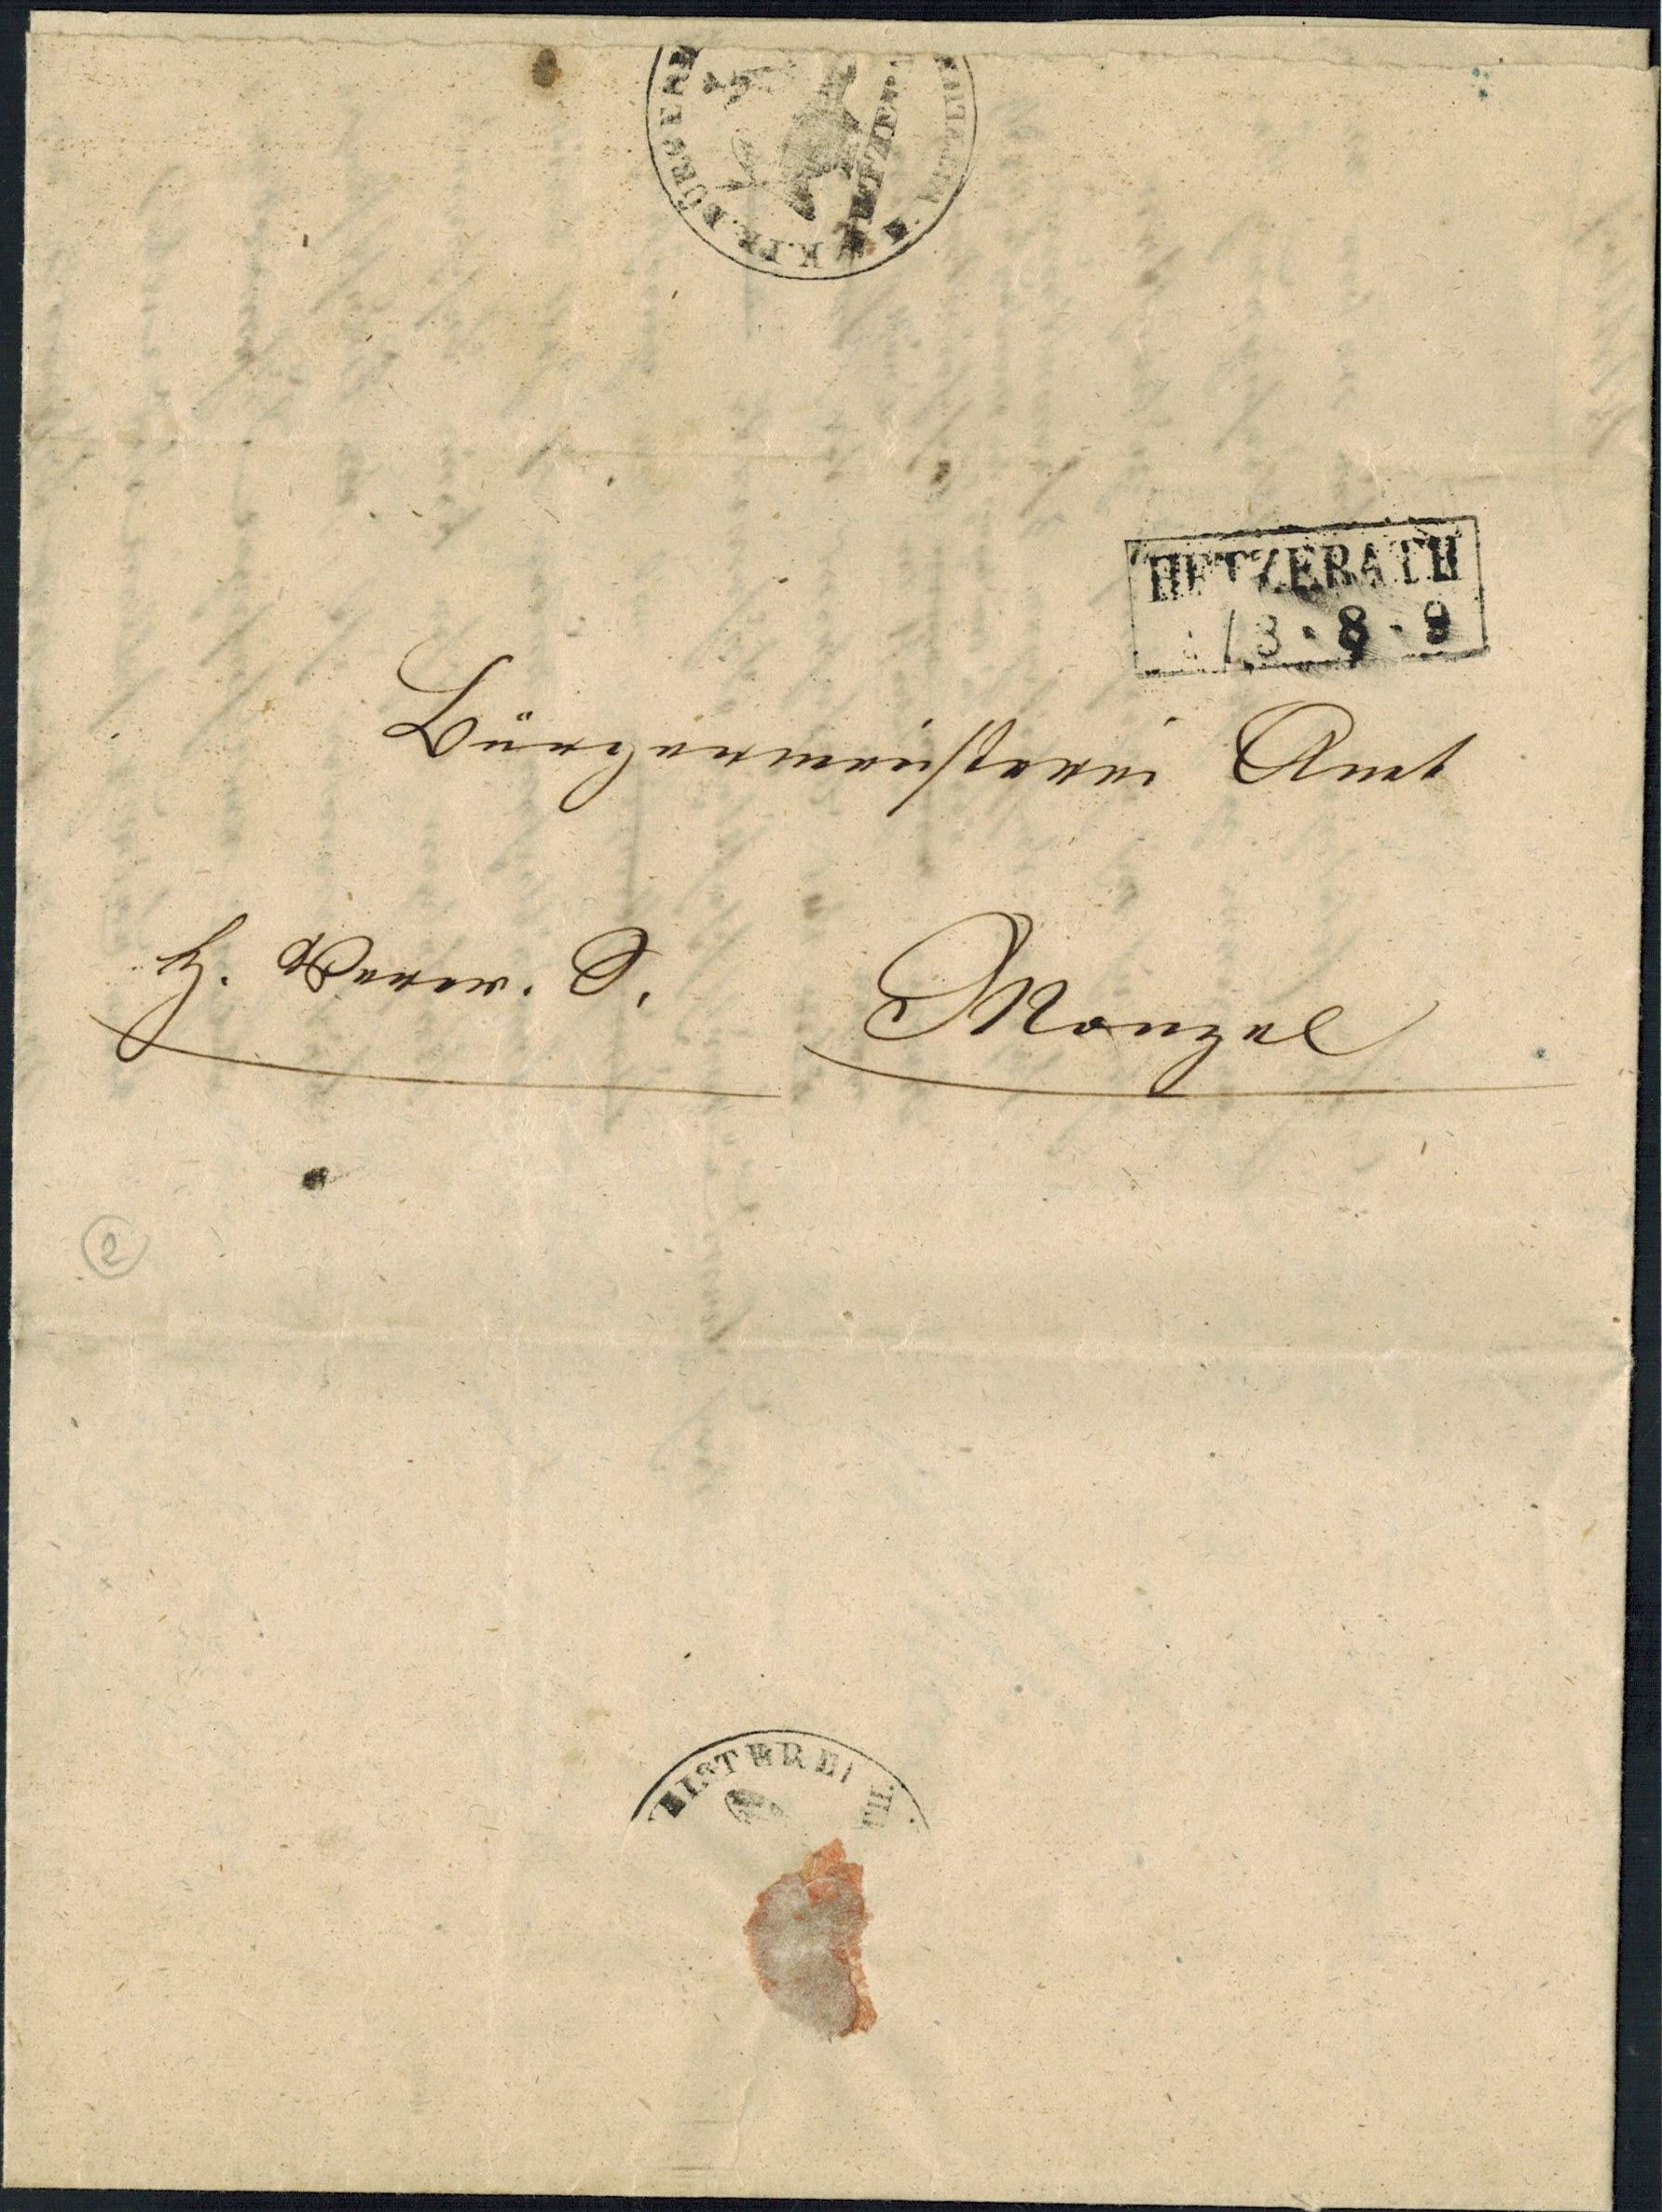 K. PR. BÜRGERM
HETZERATH
13 · 8 · 9
Bürgermeisterei Amt
H. Verw. S.
Monzel
2
EISTEREI H